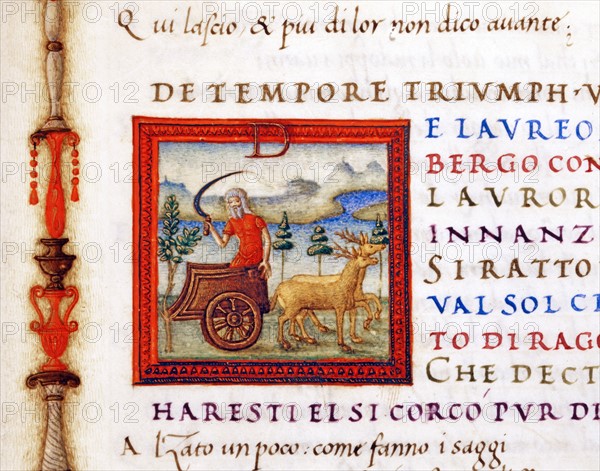 Qui lascio, & piu di lor non dico avante:
DE TEMPORE TRIVMPH·V
D
E LAVREO
BERGO CON
LAVROR
INNANZ
SI RATTO
VAL SOL CI
TO DI RAGG
CHE DECT
HARESTI EL SI CORCÓ PVR DI
Alzato un poco: come fanno i saggi